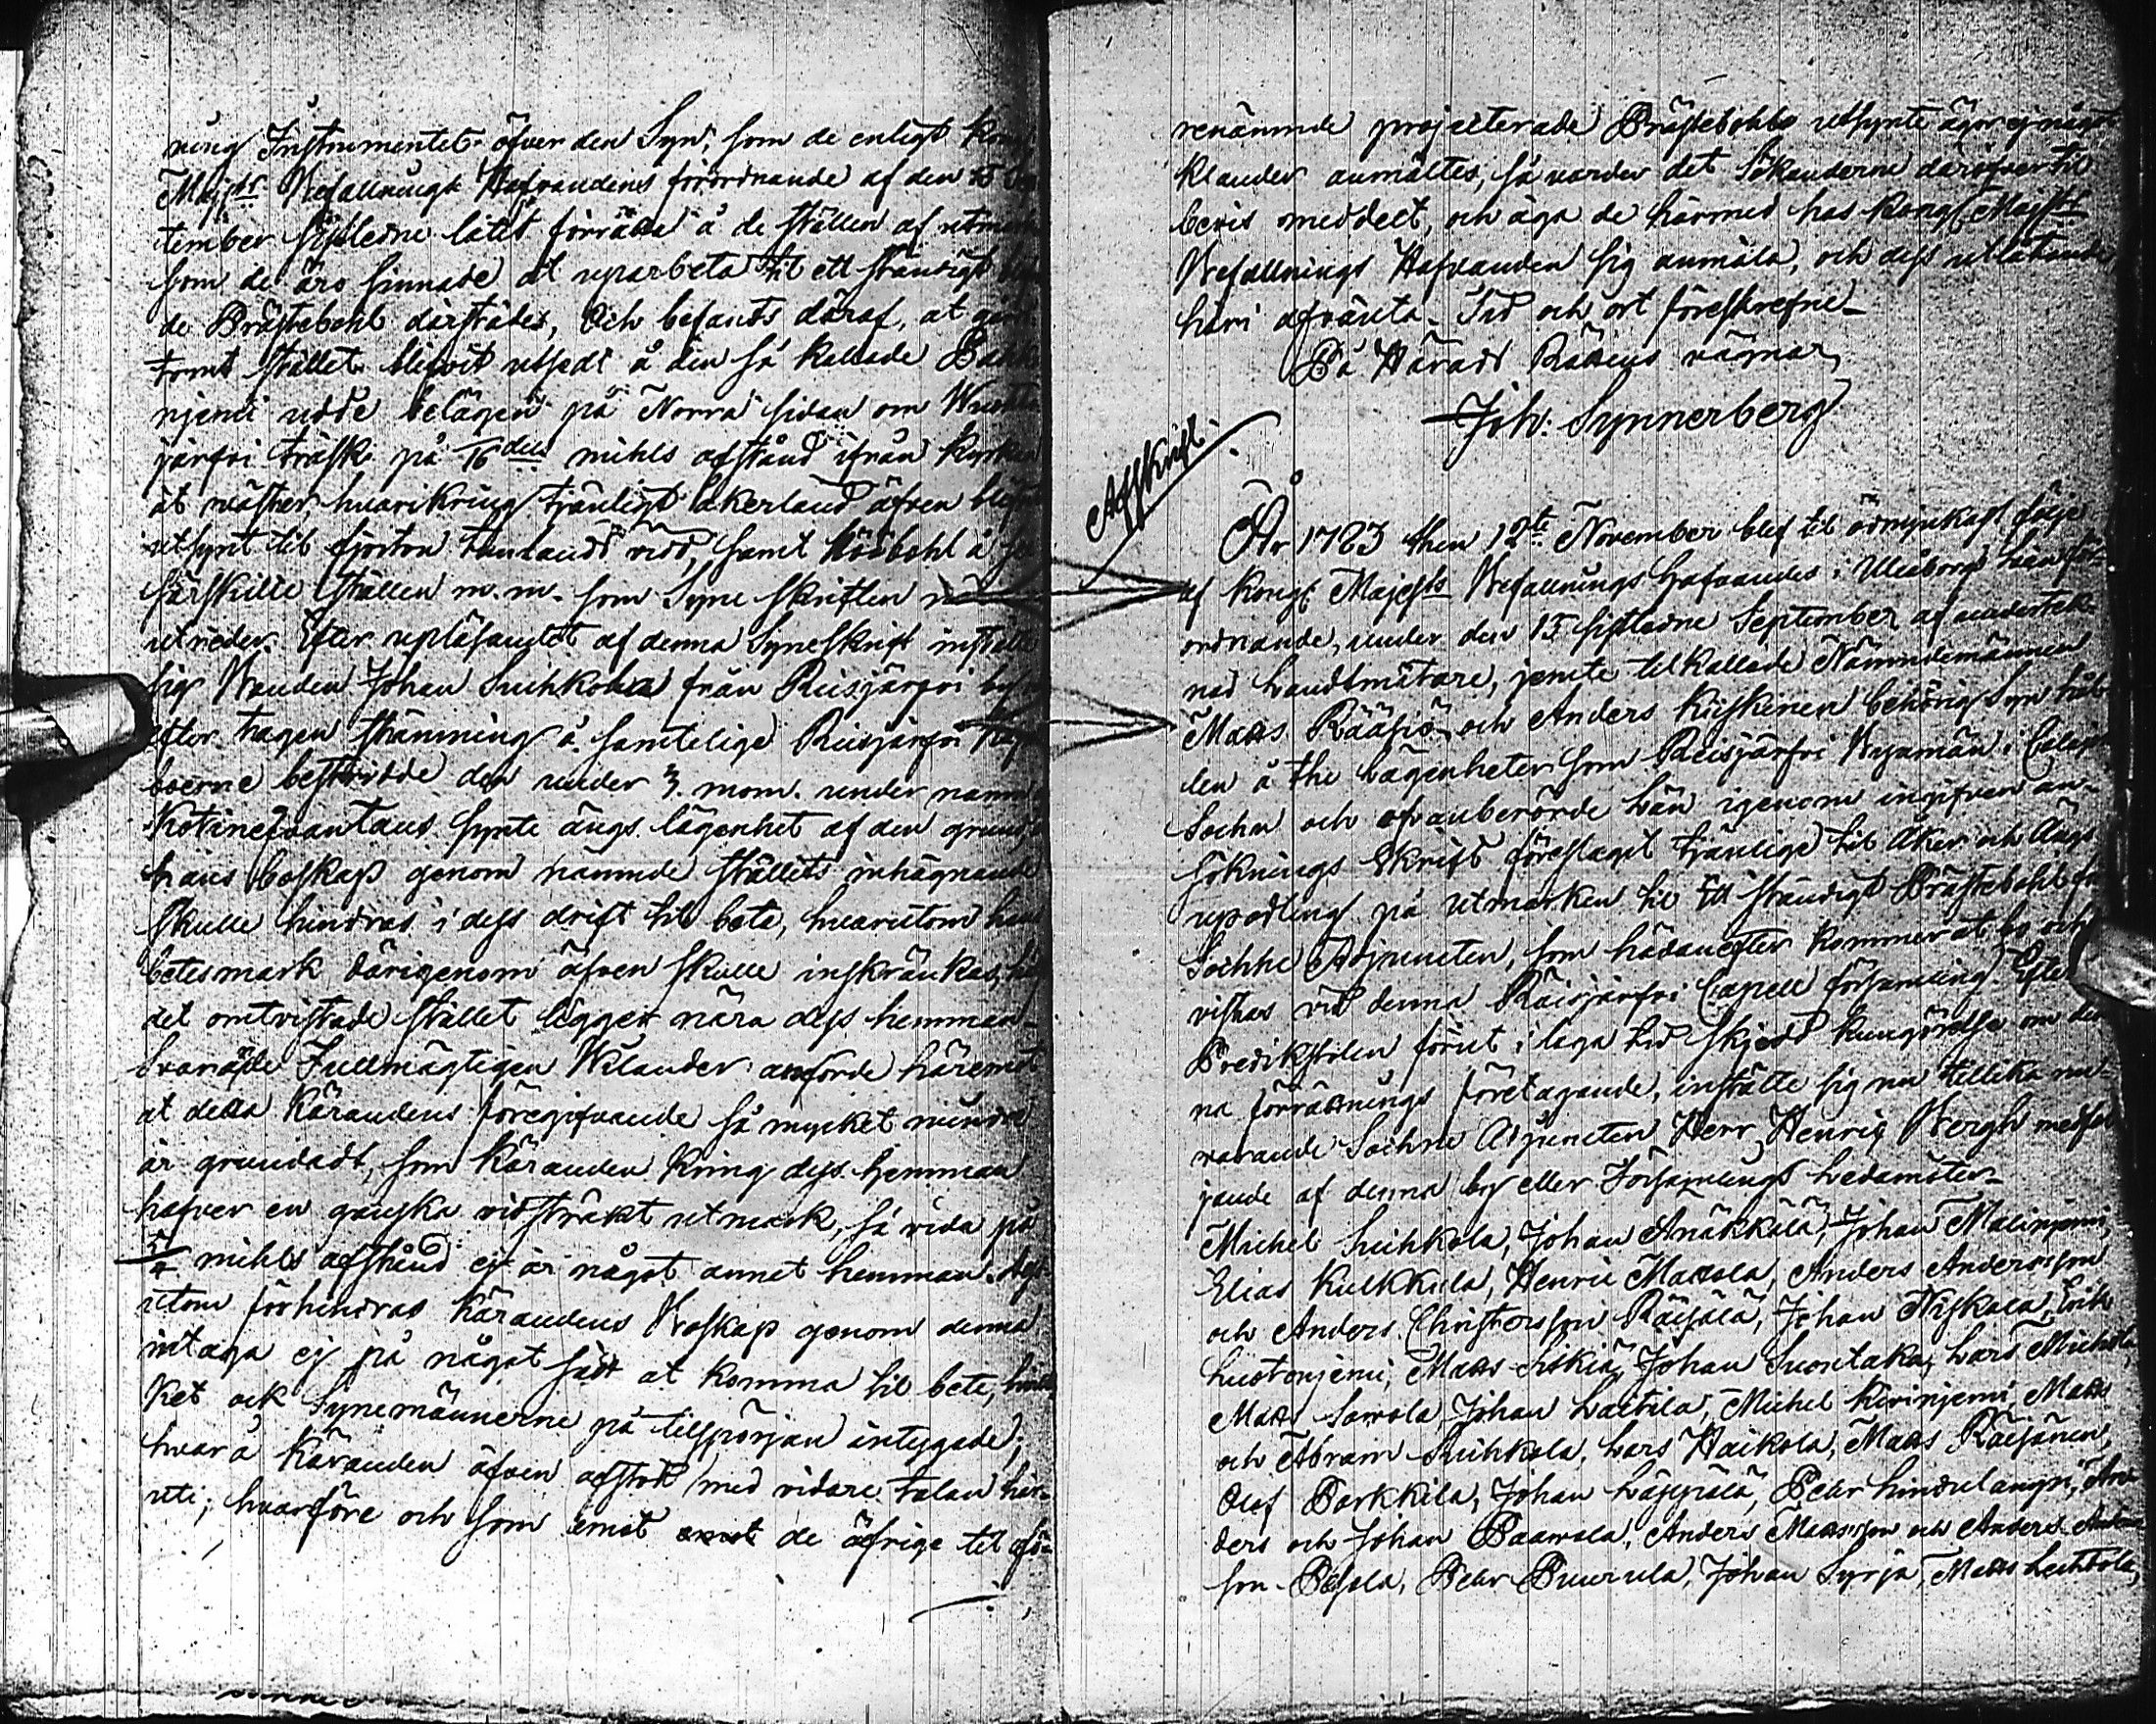 ning Instrumentet öfver den Syn, som de enligt Kon
Majsts Befallnings Hafvandens förordnande af den 15 Sep
tember sistledne låtit förrätta å de ställen af utmarken
som de äro sinnade at uparbeta til ett ständigt
de Prästebohl därstädes, Och befants däraf, at
tomt stället blifvit utsedt å den så kallade
njemi udde belägen på Norra sidan om
järfvi träsk på 1/16 dels mihls afstånd ifrån Kyrkan
åt väster hvarikring tjänligt åkerland äfven blifvit
utsynt til fjorton tunlands vidd, samt Höbohl å
särskilte ställen m.m. som Syne skriften
utreder. Efter upläsandet af denna Syneskrift instälte
sig Bonden Johan Suihkola från Reisjärfvi by
efter tagen stämning å samtelige Reisjärfvi
boerne bestridde den under 3. mom. under namn
Kotinevantaus synte ängs lägenhet af den grund,
hans boskap genom nämnde ställets inhägnande
skulle hindras i dess drift til bete, hvarutom hans
betesmark därigenom äfven skulle inskränkas,
det omtvistade stället ligger nära dess hemman-
svarade Fullmägtigen Wilander anförde häremot
at detta Kärandens föregifvande så mycket mindre
är grundadt, som Käranden kring dess hemman
hafver en ganska vidsträkt utmark, så vida på
mihls afstånd ej är något annet hemman.
utom förhindras Kärandens Boskap genom denna
intaga ej på något sätt at komma til bete, hvil
ket ock Synemännerne på tillspörjan intygade;
hvarå Käranden äfven afstod med vidare talan här-
uti; hvarföre och som emot de öfrige til
renämnde projecterade Prästebohls utsynte ägor ej något
klander anmältes, så varder det Sökanderne däröfver til
bevis meddelt, och äga de härmed hos Kongl. Majsts
Befallnings Hafvanden sig anmäla, och dess utlåtande
häri afvänta. Tid och ort föreskrefne
På Härads Rättens vägnar
Joh: Synnerberg
Afskrift.
År 1783 then 12te November blef til ödmjukast följe
af Kongl. Majests Befallnings Hafvandes i Uleåborgs Län för-
ordnande, under den 15 sistledne September af undertek-
nad Landtmätare, jemte tilkallade Nämndemännen
Matts Rääpiö och Anders Kiiskinen behörig Syn hål-
len å the lägenheter som Reisjärfvi Byamän i Calajoki
Sochn och ofvanberörde Län igenom ingifven an-
söknings Skrift föreslagit tjänlige til Åker och Ängs
upodling på utmarken til Ett ständigt Prästebohl för
Sochne Adjuncten, som hädanefter kommer at bo och
vistas vid denna Räisjärfvi Capell församling. Efter
Predikstolen förut i laga tid skjedd kungörelse om den-
na förrättnings företagande, instälte sig nu tillika när-
varande Sochne Adjuncten Herr Henric Bergh medföl-
jande af denna by eller Församlings Ledamöter
Michel Suihkola, Johan Änäkkälä, Johan Malinjemi,
Elias Kulkkula, Henric Mattola, Anders Andersson
och Anders Christersson Räisälä, Johan Niskala, Erik
Luotonjemi, Matts Siskiä, Johan Suontaka, Lars Michola,
Matts Savola, Johan Laitila, Michel Kivinjemi, Matts
och Abram Suihkola, Lars Haikola, Matts Räisänen,
Olof Parkkila, Johan Läspälä, Pehr Hindulangri, An-
ders och Johan Paavola, Anders Mattsson och Anders Anders-
son Pesola, Pehr Puurula, Johan Syrjä, Matts Lehtola,